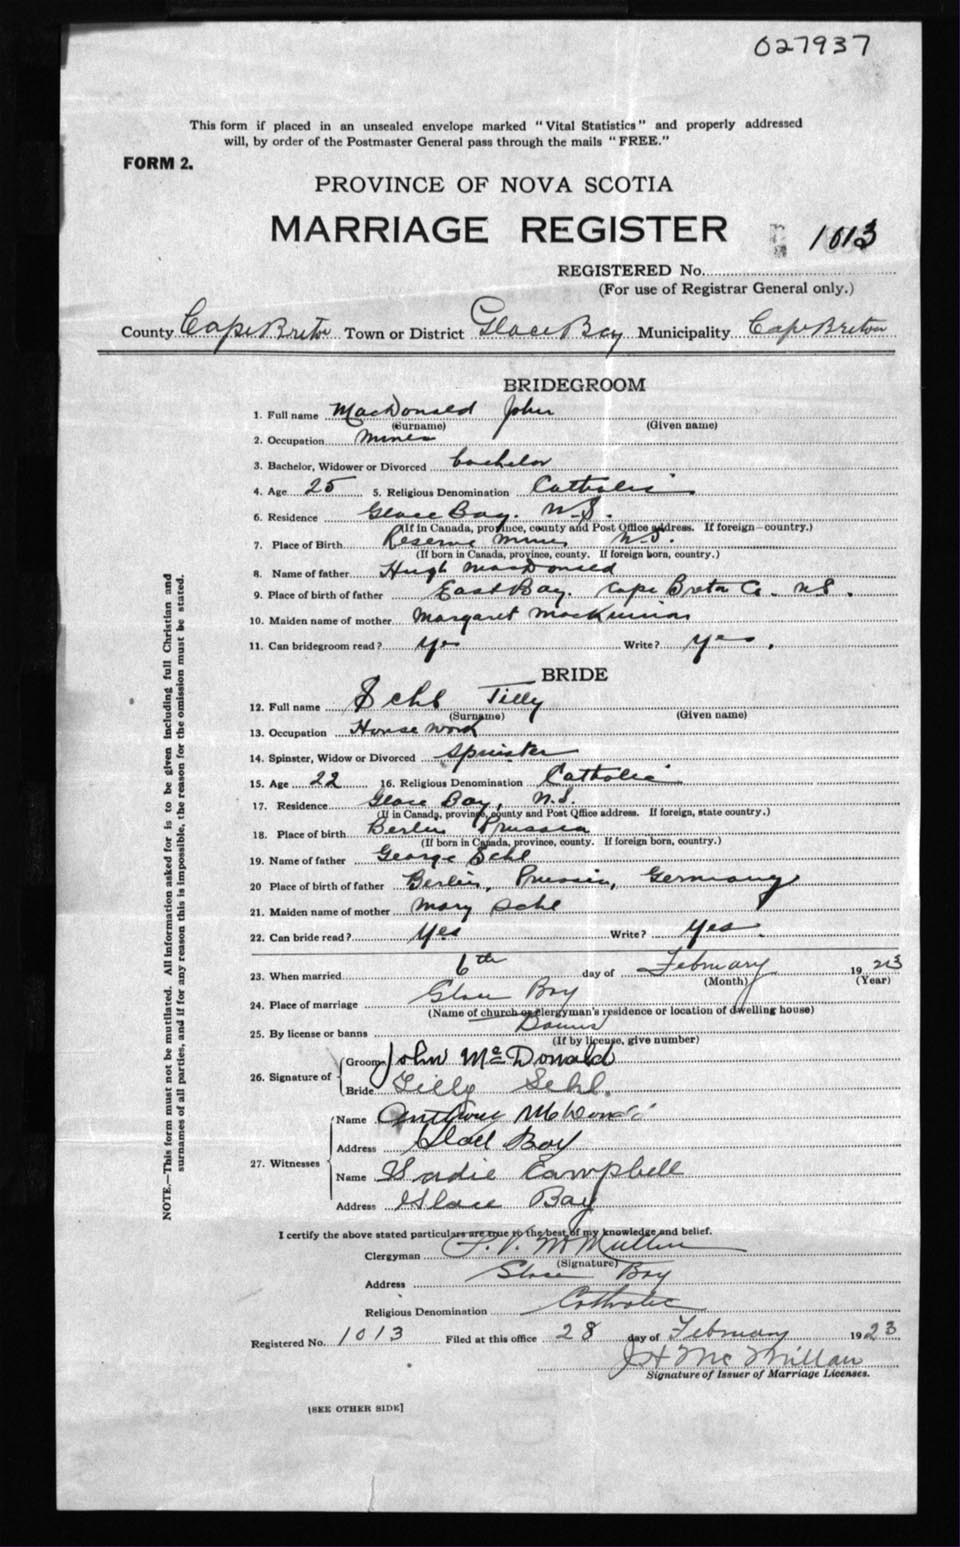 027937
This form if placed in an unsealed envelope marked "Vital Statistics" and properly addressed
will, by order of the Postmaster General pass through the mails "FREE."
FORM 2.
PROVINCE OF NOVA SCOTIA
MARRIAGE REGISTER
1013
REGISTERED No.
(For use of Registrar General only.)
County Cape Breton Town or District Glace Bay Municipality Cape Breton
BRIDEGROOM
1. Full name MacDonald John
(Surname) (Given name)
2. Occupation miner
3. Bachelor, Widower or Divorced bachelor
4. Age 25 5. Religious Denomination Catholic
6. Residence Glace Bay. N.S.
(If in Canada, province, county and Post Office address. If foreign—country.)
7. Place of Birth Reserve Mines N.S.
(If born in Canada, province, county. If foreign born, country.)
8. Name of father Hugh MacDonald
9. Place of birth of father East Bay. Cape Breton Co. N.S.
10. Maiden name of mother Margaret MacKinnon
11. Can bridegroom read? yes Write? yes.
BRIDE
12. Full name Sehl Tilly
(Surname) (Given name)
13. Occupation House work
14. Spinster, Widow or Divorced spinster
15. Age 22 16. Religious Denomination Catholic
17. Residence Glace Bay, N.S.
(If in Canada, province, county and Post Office address. If foreign, state country.)
18. Place of birth Berlin Prussia
(If born in Canada, province, county. If foreign born, country.)
19. Name of father George Sehl
20 Place of birth of father Berlin, Prussia, Germany
21. Maiden name of mother Mary Sehl
22. Can bride read? Yes Write? Yes.
23. When married 6th day of February 1923
(Month) (Year)
24. Place of marriage Glace Bay
(Name of church or clergyman's residence or location of dwelling house)
25. By license or banns Banns
(If by license, give number)
26. Signature of Groom John McDonald
Bride Tilly Sehl.
27. Witnesses Name Anthony McDonald
Address Glace Bay
Name Sadie Campbell
Address Glace Bay
I certify the above stated particulars are true to the best of my knowledge and belief.
Clergyman McMullin
(Signature)
Address Glace Bay
Religious Denomination Catholic
Registered No. 1013 Filed at this office 28 day of February 1923
J H McMillan
Signature of Issuer of Marriage Licenses.
[SEE OTHER SIDE]
NOTE.—This form must not be mutilated. All information asked for is to be given including full Christian and
surnames of all parties, and if for any reason this is impossible, the reason for the omission must be stated.